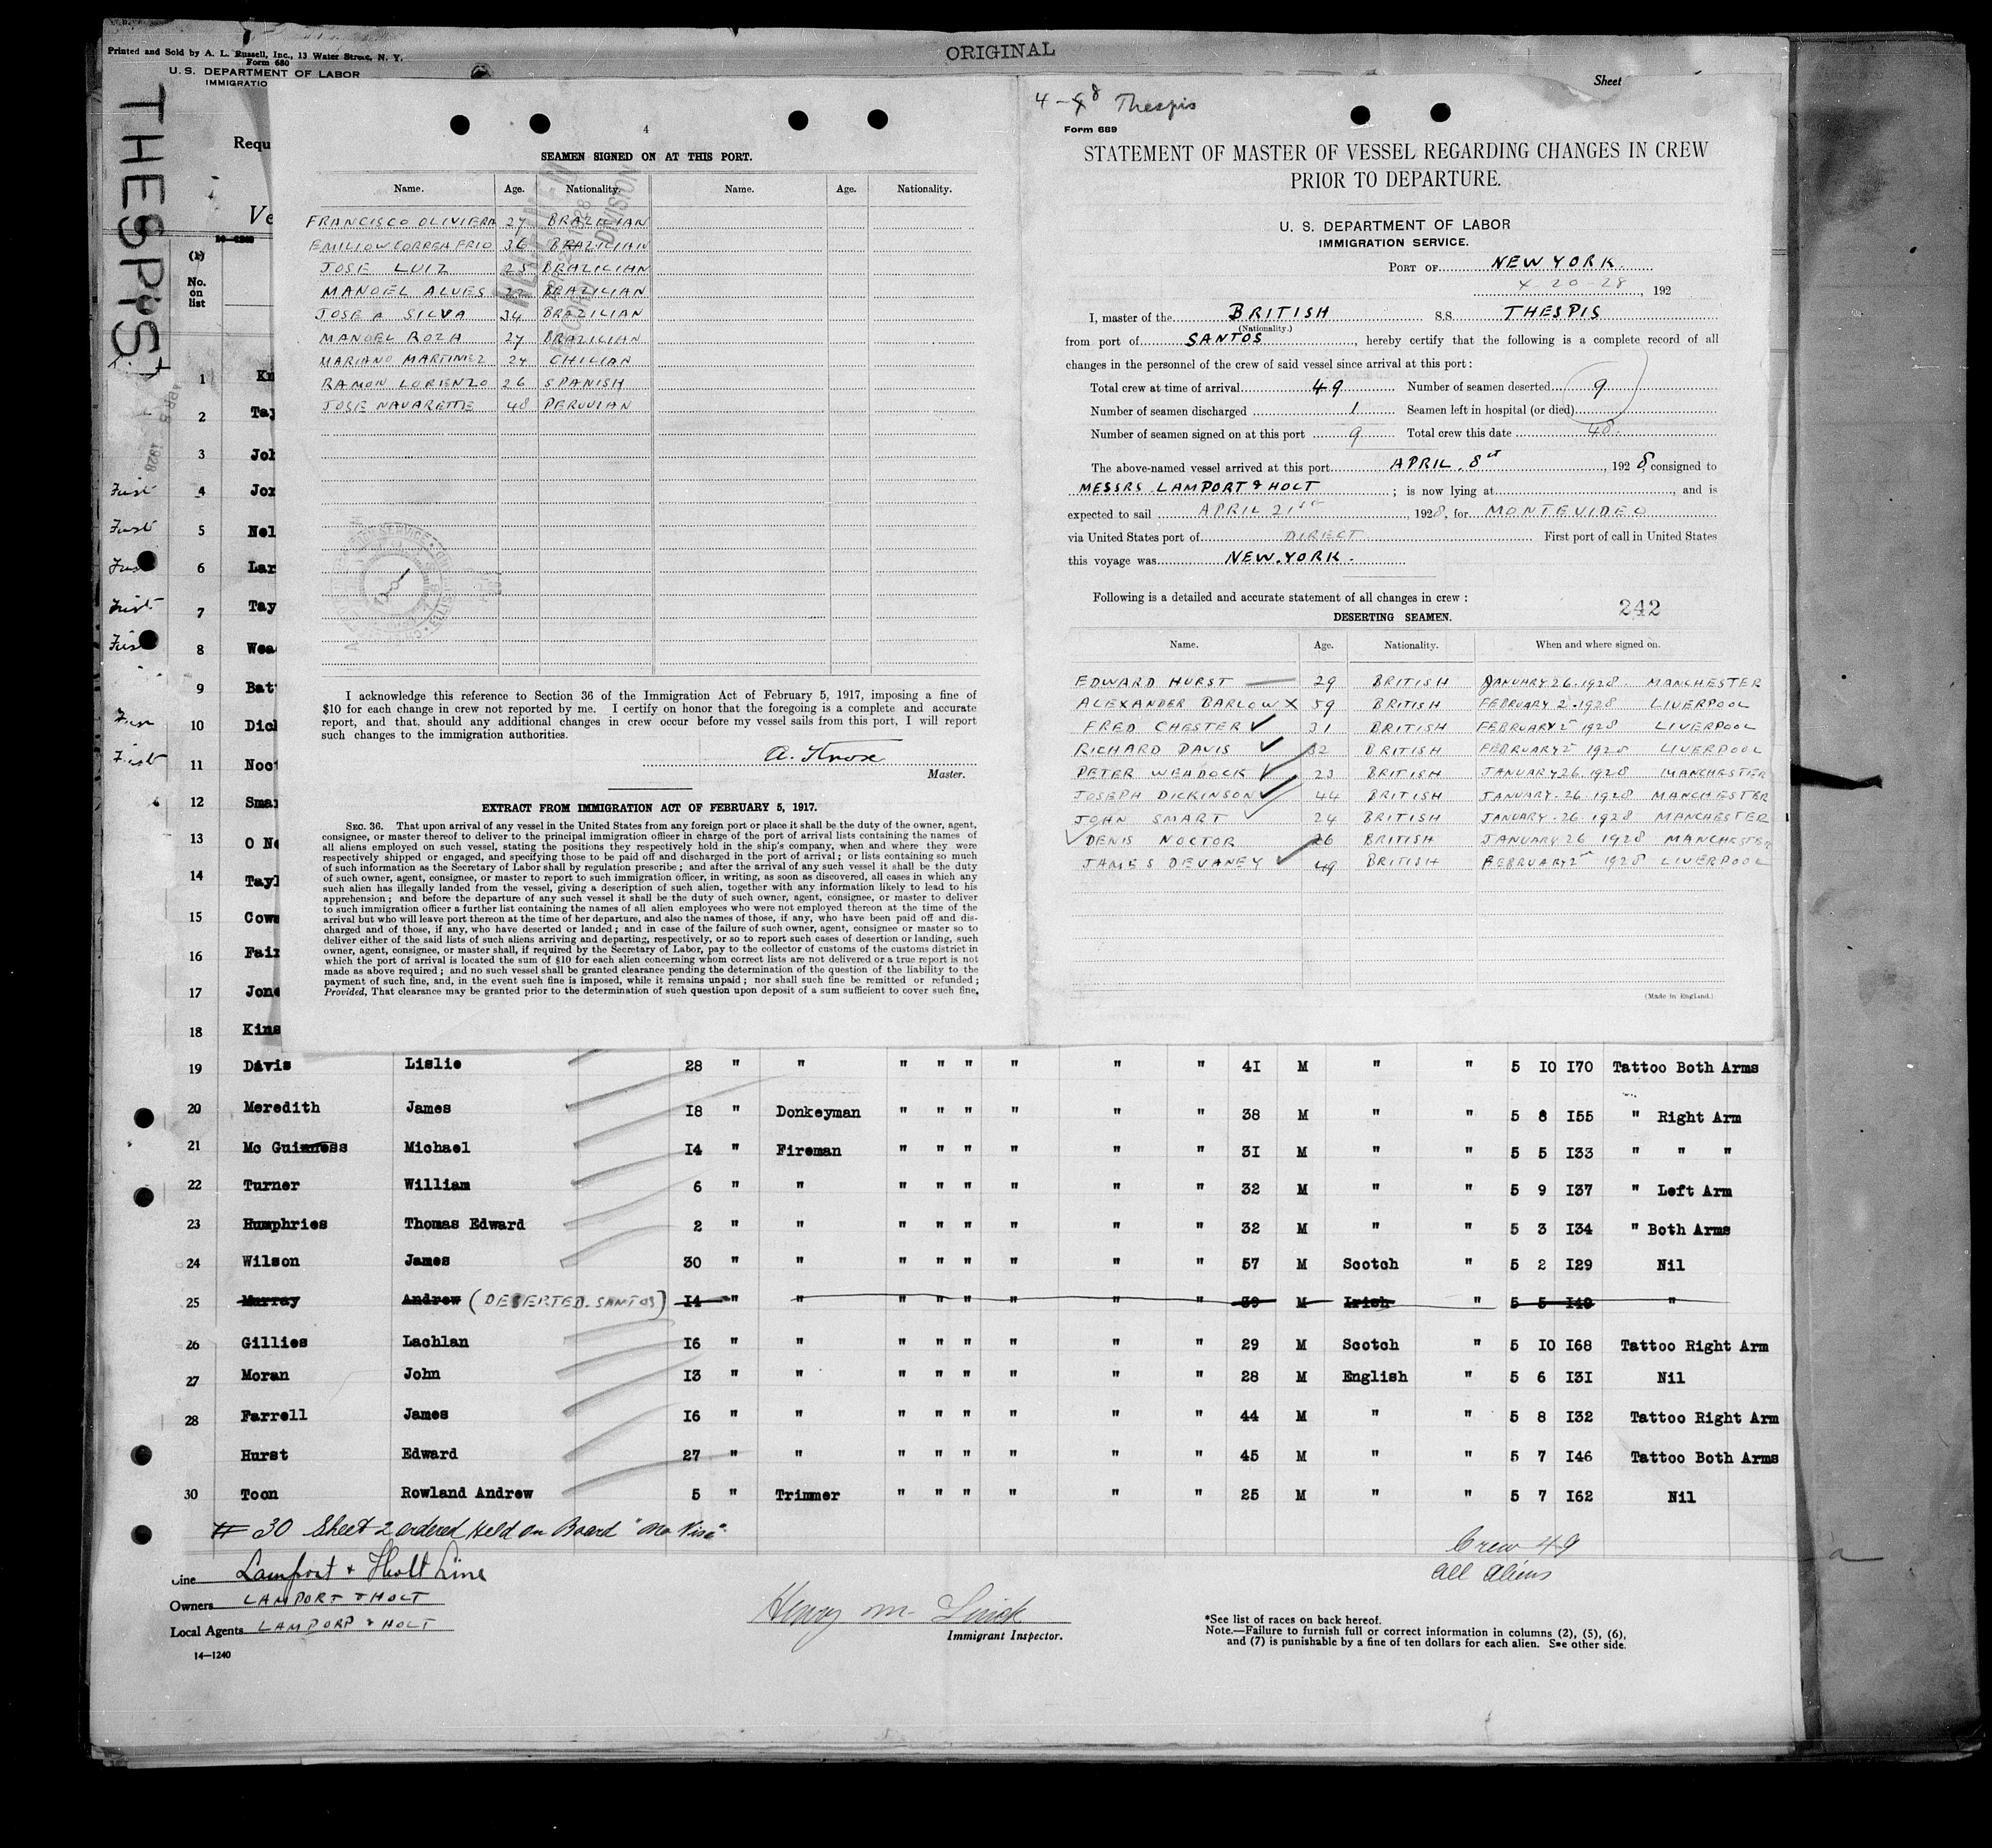 ORIGINAL
Printed and Sold by A. L. Russell, Inc., 13 Water Street, N. Y.
Form 680
U. S. DEPARTMENT OF LABOR
IMMIGRATIO
Sheet
THESPIS
Requ
Ve
14—1240
(1)
No.
on
list
APR 8 1928
1 Kn
2 Tay
3 Joh
First 4 Jon
First 5 Nel
First 6 Lar
First 7 Tay
First 8 Wea
9 Batt
First 10 Dick
First 11 Noct
12 Smar
13 O Ne
14 Tayl
15 Cowa
16 Fair
17 Jone
18 Kins
4
SEAMEN SIGNED ON AT THIS PORT.
Name. Age. Nationality. Name. Age. Nationality.
FRANCISCO OLIVIERA 27 BRAZILIAN
EMILIOW CORREA FRIO 36 BRAZILIAN
JOSE LUIZ 25 BRAZILIAN
MANOEL ALVES 22 BRAZILIAN
JOSE A SILVA 34 BRAZILIAN
MANOEL ROZA 27 BRAZILIAN
MARIANO MARTINEZ 24 CHILIAN
RAMON LORENZO 26 SPANISH
JOSE NAVARETTE 48 PERUVIAN
I acknowledge this reference to Section 36 of the Immigration Act of February 5, 1917, imposing a fine of
$10 for each change in crew not reported by me. I certify on honor that the foregoing is a complete and accurate
report, and that, should any additional changes in crew occur before my vessel sails from this port, I will report
such changes to the immigration authorities.
A. Knox
Master.
EXTRACT FROM IMMIGRATION ACT OF FEBRUARY 5, 1917.
SEC. 36. That upon arrival of any vessel in the United States from any foreign port or place it shall be the duty of the owner, agent,
consignee, or master thereof to deliver to the principal immigration officer in charge of the port of arrival lists containing the names of
all aliens employed on such vessel, stating the positions they respectively hold in the ship's company, when and where they were
respectively shipped or engaged, and specifying those to be paid off and discharged in the port of arrival; or lists containing so much
of such information as the Secretary of Labor shall by regulation prescribe; and after the arrival of any such vessel it shall be the duty
of such owner, agent, consignee, or master to report to such immigration officer, in writing, as soon as discovered, all cases in which any
such alien has illegally landed from the vessel, giving a description of such alien, together with any information likely to lead to his
apprehension; and before the departure of any such vessel it shall be the duty of such owner, agent, consignee, or master to deliver
to such immigration officer a further list containing the names of all alien employees who were not employed thereon at the time of the
arrival but who will leave port thereon at the time of her departure, and also the names of those, if any, who have been paid off and dis-
charged and of those, if any, who have deserted or landed; and in case of the failure of such owner, agent, consignee or master so to
deliver either of the said lists of such aliens arriving and departing, respectively, or so to report such cases of desertion or landing, such
owner, agent, consignee, or master shall, if required by the Secretary of Labor, pay to the collector of customs of the customs district in
which the port of arrival is located the sum of $10 for each alien concerning whom correct lists are not delivered or a true report is not
made as above required; and no such vessel shall be granted clearance pending the determination of the question of the liability to the
payment of such fine, and, in the event such fine is imposed, while it remains unpaid; nor shall such fine be remitted or refunded;
Provided, That clearance may be granted prior to the determination of such question upon deposit of a sum sufficient to cover such fine.
4-8 Thespis
Form 689
STATEMENT OF MASTER OF VESSEL REGARDING CHANGES IN CREW
PRIOR TO DEPARTURE.
U. S. DEPARTMENT OF LABOR
IMMIGRATION SERVICE.
PORT OF NEW YORK.
4-20-28, 192
I, master of the BRITISH SS. THESPIS
(Nationality.)
from port of SANTOS, hereby certify that the following is a complete record of all
changes in the personnel of the crew of said vessel since arrival at this port:
Total crew at time of arrival 49 Number of seamen deserted 9
Number of seamen discharged 1 Seamen left in hospital (or died)
Number of seamen signed on at this port 9 Total crew this date 48.
The above-named vessel arrived at this port APRIL. 8st, 1928, consigned to
MESSRS LAMPORT & HOLT; is now lying at, and is
expected to sail APRIL 21st, 1928, for MONTEVIDEO
via United States port of DIRECT First port of call in United States
this voyage was NEW.YORK.
Following is a detailed and accurate statement of all changes in crew:
242
DESERTING SEAMEN.
Name. Age. Nationality. When and where signed on.
EDWARD HURST 29 BRITISH JANUARY 26. 1928. MANCHESTER
ALEXANDER BARLOW X 59 BRITISH FEBRUARY 2. 1928 LIVERPOOL
FRED CHESTER ✓ 31 BRITISH FEBRUARY 2nd 1928 LIVERPOOL
RICHARD DAVIS ✓ 32 BRITISH FEBRUARY 2nd 1928 LIVERPOOL
PETER WEADOCK ✓ 23 BRITISH JANUARY 26. 1928 MANCHESTER
JOSEPH DICKINSON ✓ 44 BRITISH JANUARY. 26. 1928 MANCHESTER
JOHN SMART ✓ 24 BRITISH JANUARY. 26. 1928 MANCHESTER
✓ DENIS NOCTOR 26 BRITISH JANUARY 26 1928 MANCHESTER
JAMES DEVANEY ✓ 49 BRITISH FEBRUARY 2nd 1928 LIVERPOOL
(Made in England.)
19 Davis Lislie 28 " " " " " " " " 41 M " " 5 10 170 Tattoo Both Arms
20 Meredith James 18 " Donkeyman " " " " " " 38 M " " 5 8 155 " Right Arm
21 Mc Guinness Michael 14 " Fireman " " " " " " 31 M " " 5 5 133 " " "
22 Turner William 6 " " " " " " " " 32 M " " 5 9 137 " Left Arm
23 Humphries Thomas Edward 2 " " " " " " " " 32 M " " 5 3 134 " Both Arms
24 Wilson James 30 " " " " " " " " 57 M Scotch " 5 2 129 Nil
25 Murray Andrew (DESERTED. SANTOS) 14 " " " " " " " " 39 M Irish " 5 5 140 "
26 Gillies Lachlan 16 " " " " " " " " 29 M Scotch " 5 10 168 Tattoo Right Arm
27 Moran John 13 " " " " " " " " 28 M English " 5 6 131 Nil
28 Farrell James 16 " " " " " " " " 44 M " " 5 8 132 Tattoo Right Arm
Hurst Edward 27 " " " " " " " " 45 M " " 5 7 146 Tattoo Both Arms
30 Toon Rowland Andrew 5 " Trimmer " " " " " " 25 M " " 5 7 162 Nil
# 30 Sheet 2 ordered Held on Board "no Visa".
Crew 49
All Aliens
Line Lamport & Holt Line
Owners LAMPORT & HOLT
Local Agents LAMPORP & HOLT
14—1240
Henry M.
Immigrant Inspector.
*See list of races on back hereof.
Note.—Failure to furnish full or correct information in columns (2), (5), (6),
and (7) is punishable by a fine of ten dollars for each alien. See other side.